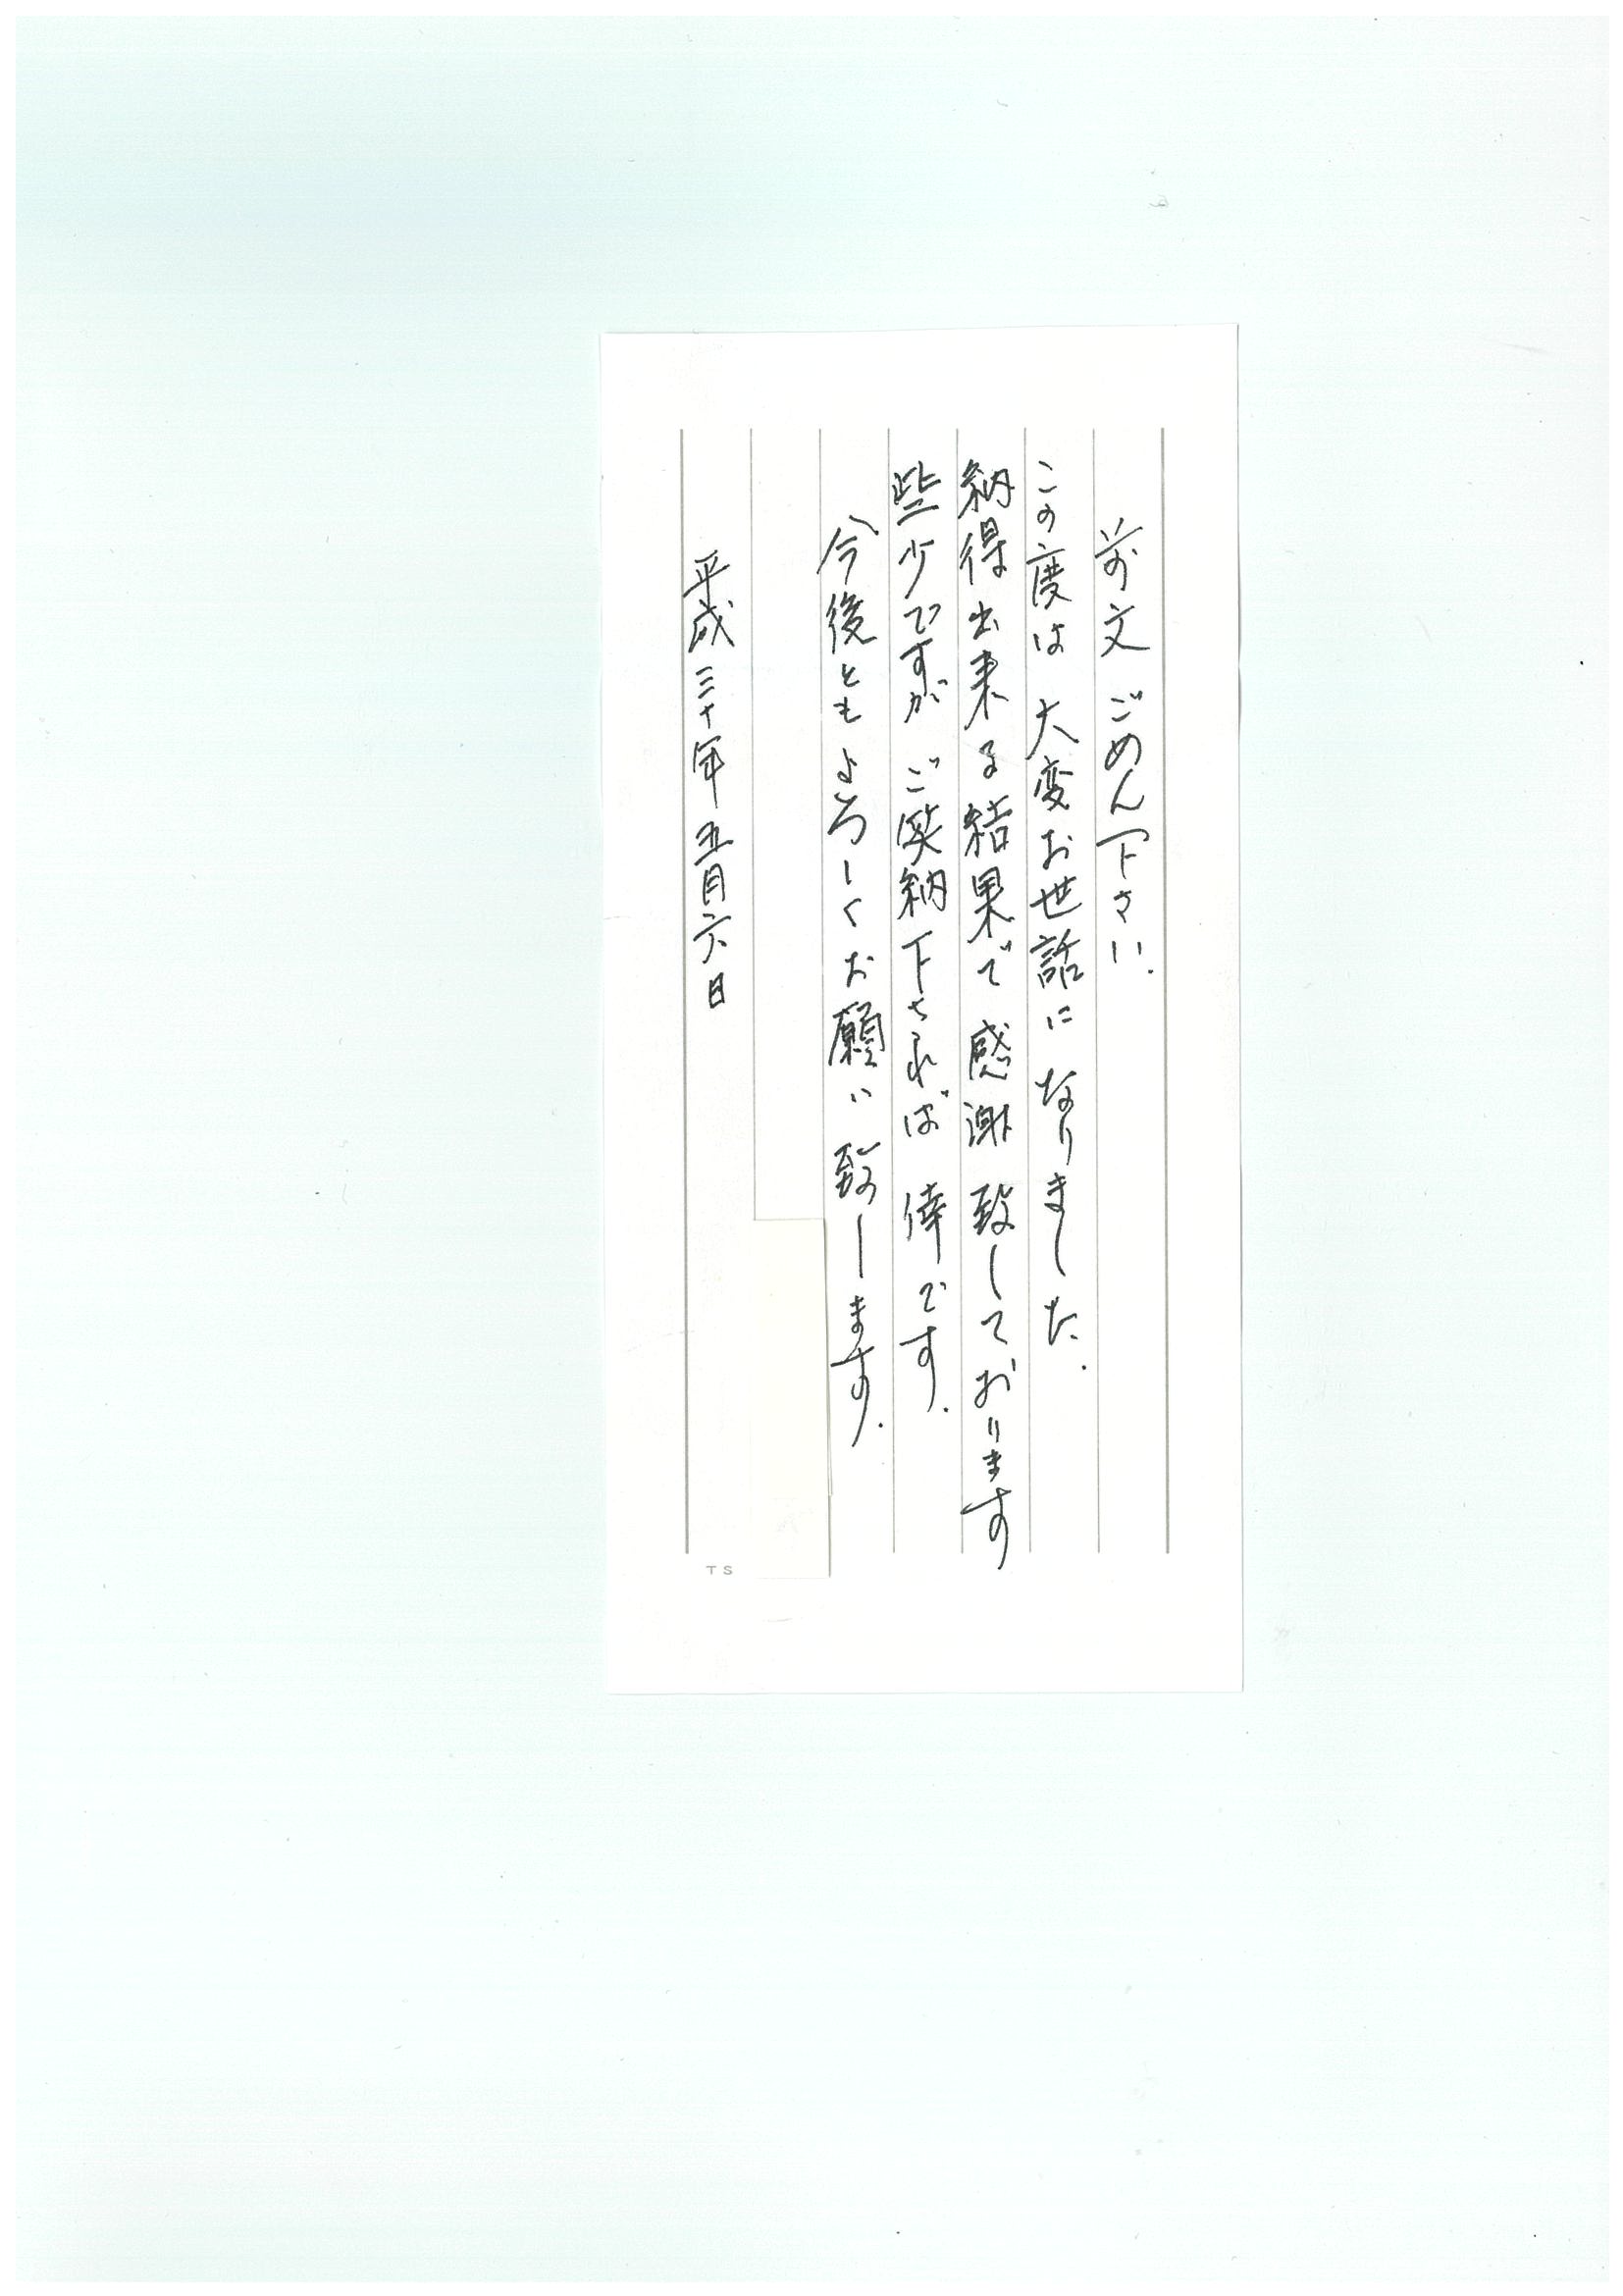 前文 ごめん下さい.
この度は 大変お世話に なりました.
納得出来る結果で 感謝 致しております
些少ですが ご笑納下されば 倖です.
今後ともよろしくお願い致します.
平成三十年 五月六日
TS